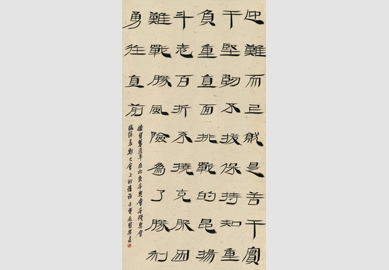 迎難而上就是善于實
干堅韌不拔保持知重
負重直面挑戰的昂揚
斗志百折不撓克服困
難戰勝風險為了勝利
勇往直前